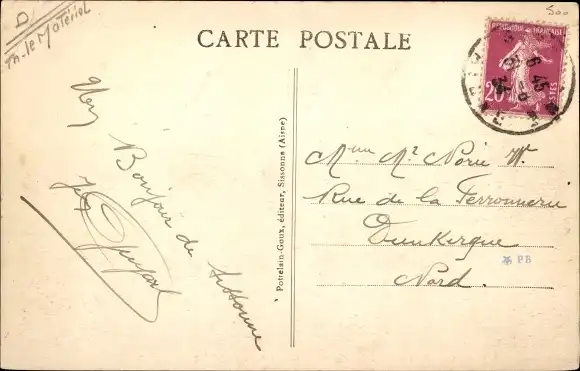 D
Th-le Matériel
500
CARTE POSTALE
REPUBLIQUE FRANÇAISE
20
POSTES
6 45
Un Bonjour de Sissonne
Potrelain-Goux, éditeur, Sissonne (Aisne)
Mme Mr Norie W.
Rue de la Ferronnerie
Dunkerque
Nord.
PB